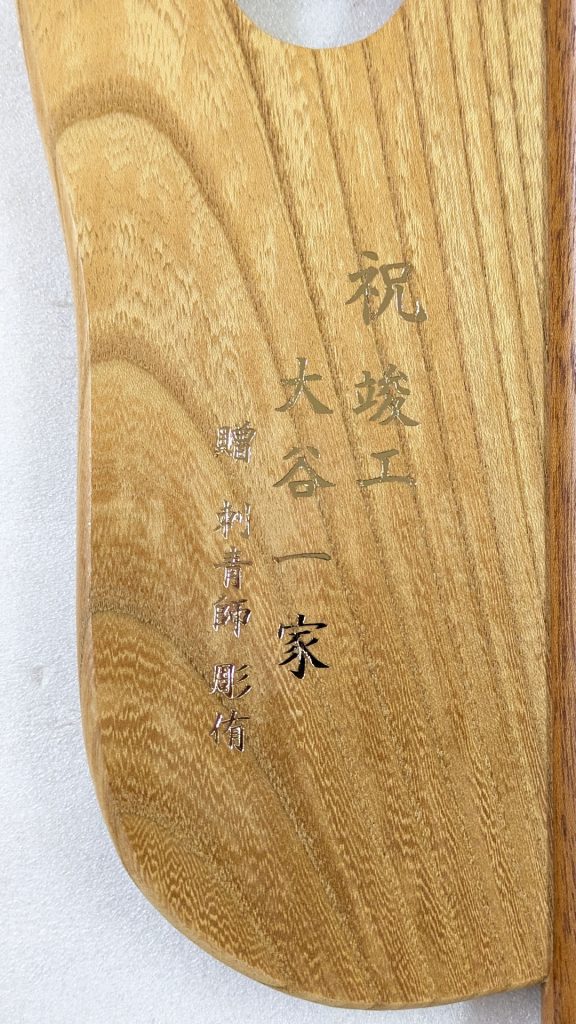 祝 竣工
大谷一家
贈 刺青師 彫侑